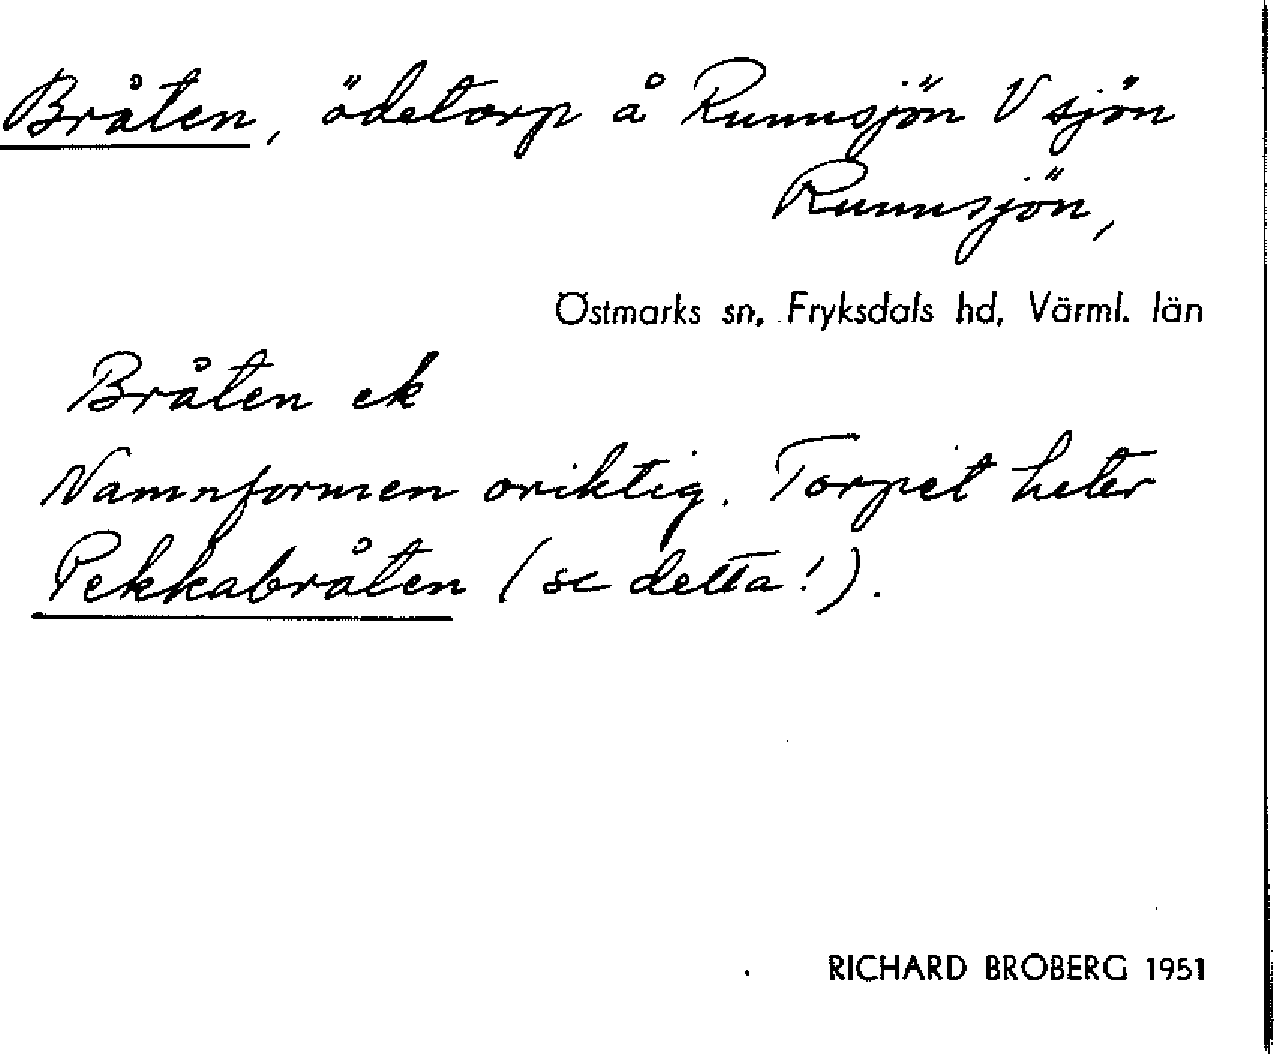 Bråten, ödetorp å Runnsjön V sjön
Runnsjön,
Östmarks sn, Fryksdals hd, Värml. län
Bråten ek
Namnformen oriktig. Torpet heter
Pekkabråten (se detta!).
RICHARD BROBERG 1951